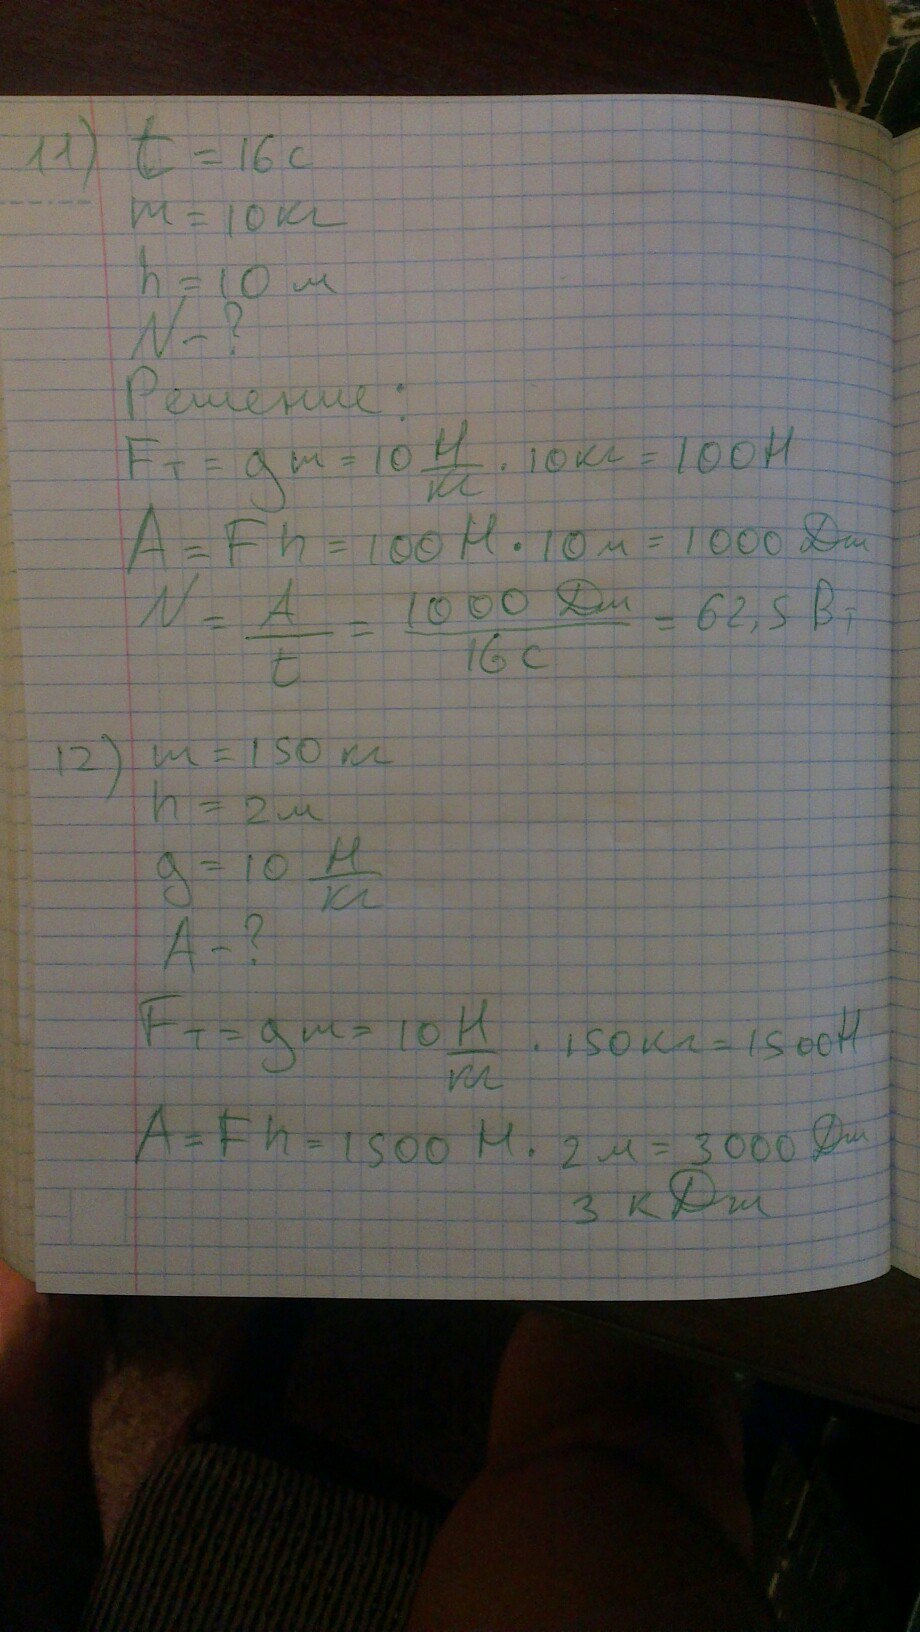 11) t = 16 с
m = 10 кг
h = 10 м
N - ?
Решение:
Fт = gm = 10 Н/кг · 10 кг = 100 Н
A = Fh = 100 Н · 10 м = 1000 Дж
N = A/t = 1000 Дж/16 с = 62,5 Вт
12) m = 150 кг
h = 2 м
g = 10 Н/кг
A - ?
Fт = gm = 10 Н/кг · 150 кг = 1500 Н
A = Fh = 1500 Н · 2 м = 3000 Дж
3 кДж